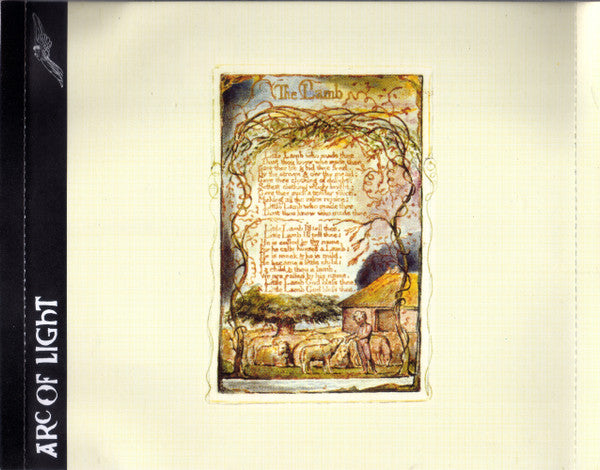 ARC OF LIGHT
The Lamb
Little Lamb who made thee
Dost thou know who made thee
Gave thee life & bid thee feed.
By the stream & o'er the mead;
Gave thee clothing of delight,
Softest clothing wooly bright;
Gave thee such a tender voice,
Making all the vales rejoice:
Little Lamb who made thee
Dost thou know who made thee
Little Lamb I'll tell thee,
Little Lamb I'll tell thee;
He is called by thy name,
For he calls himself a Lamb:
He is meek & he is mild,
He became a little child:
I a child & thou a lamb,
We are called by his name.
Little Lamb God bless thee.
Little Lamb God bless thee.